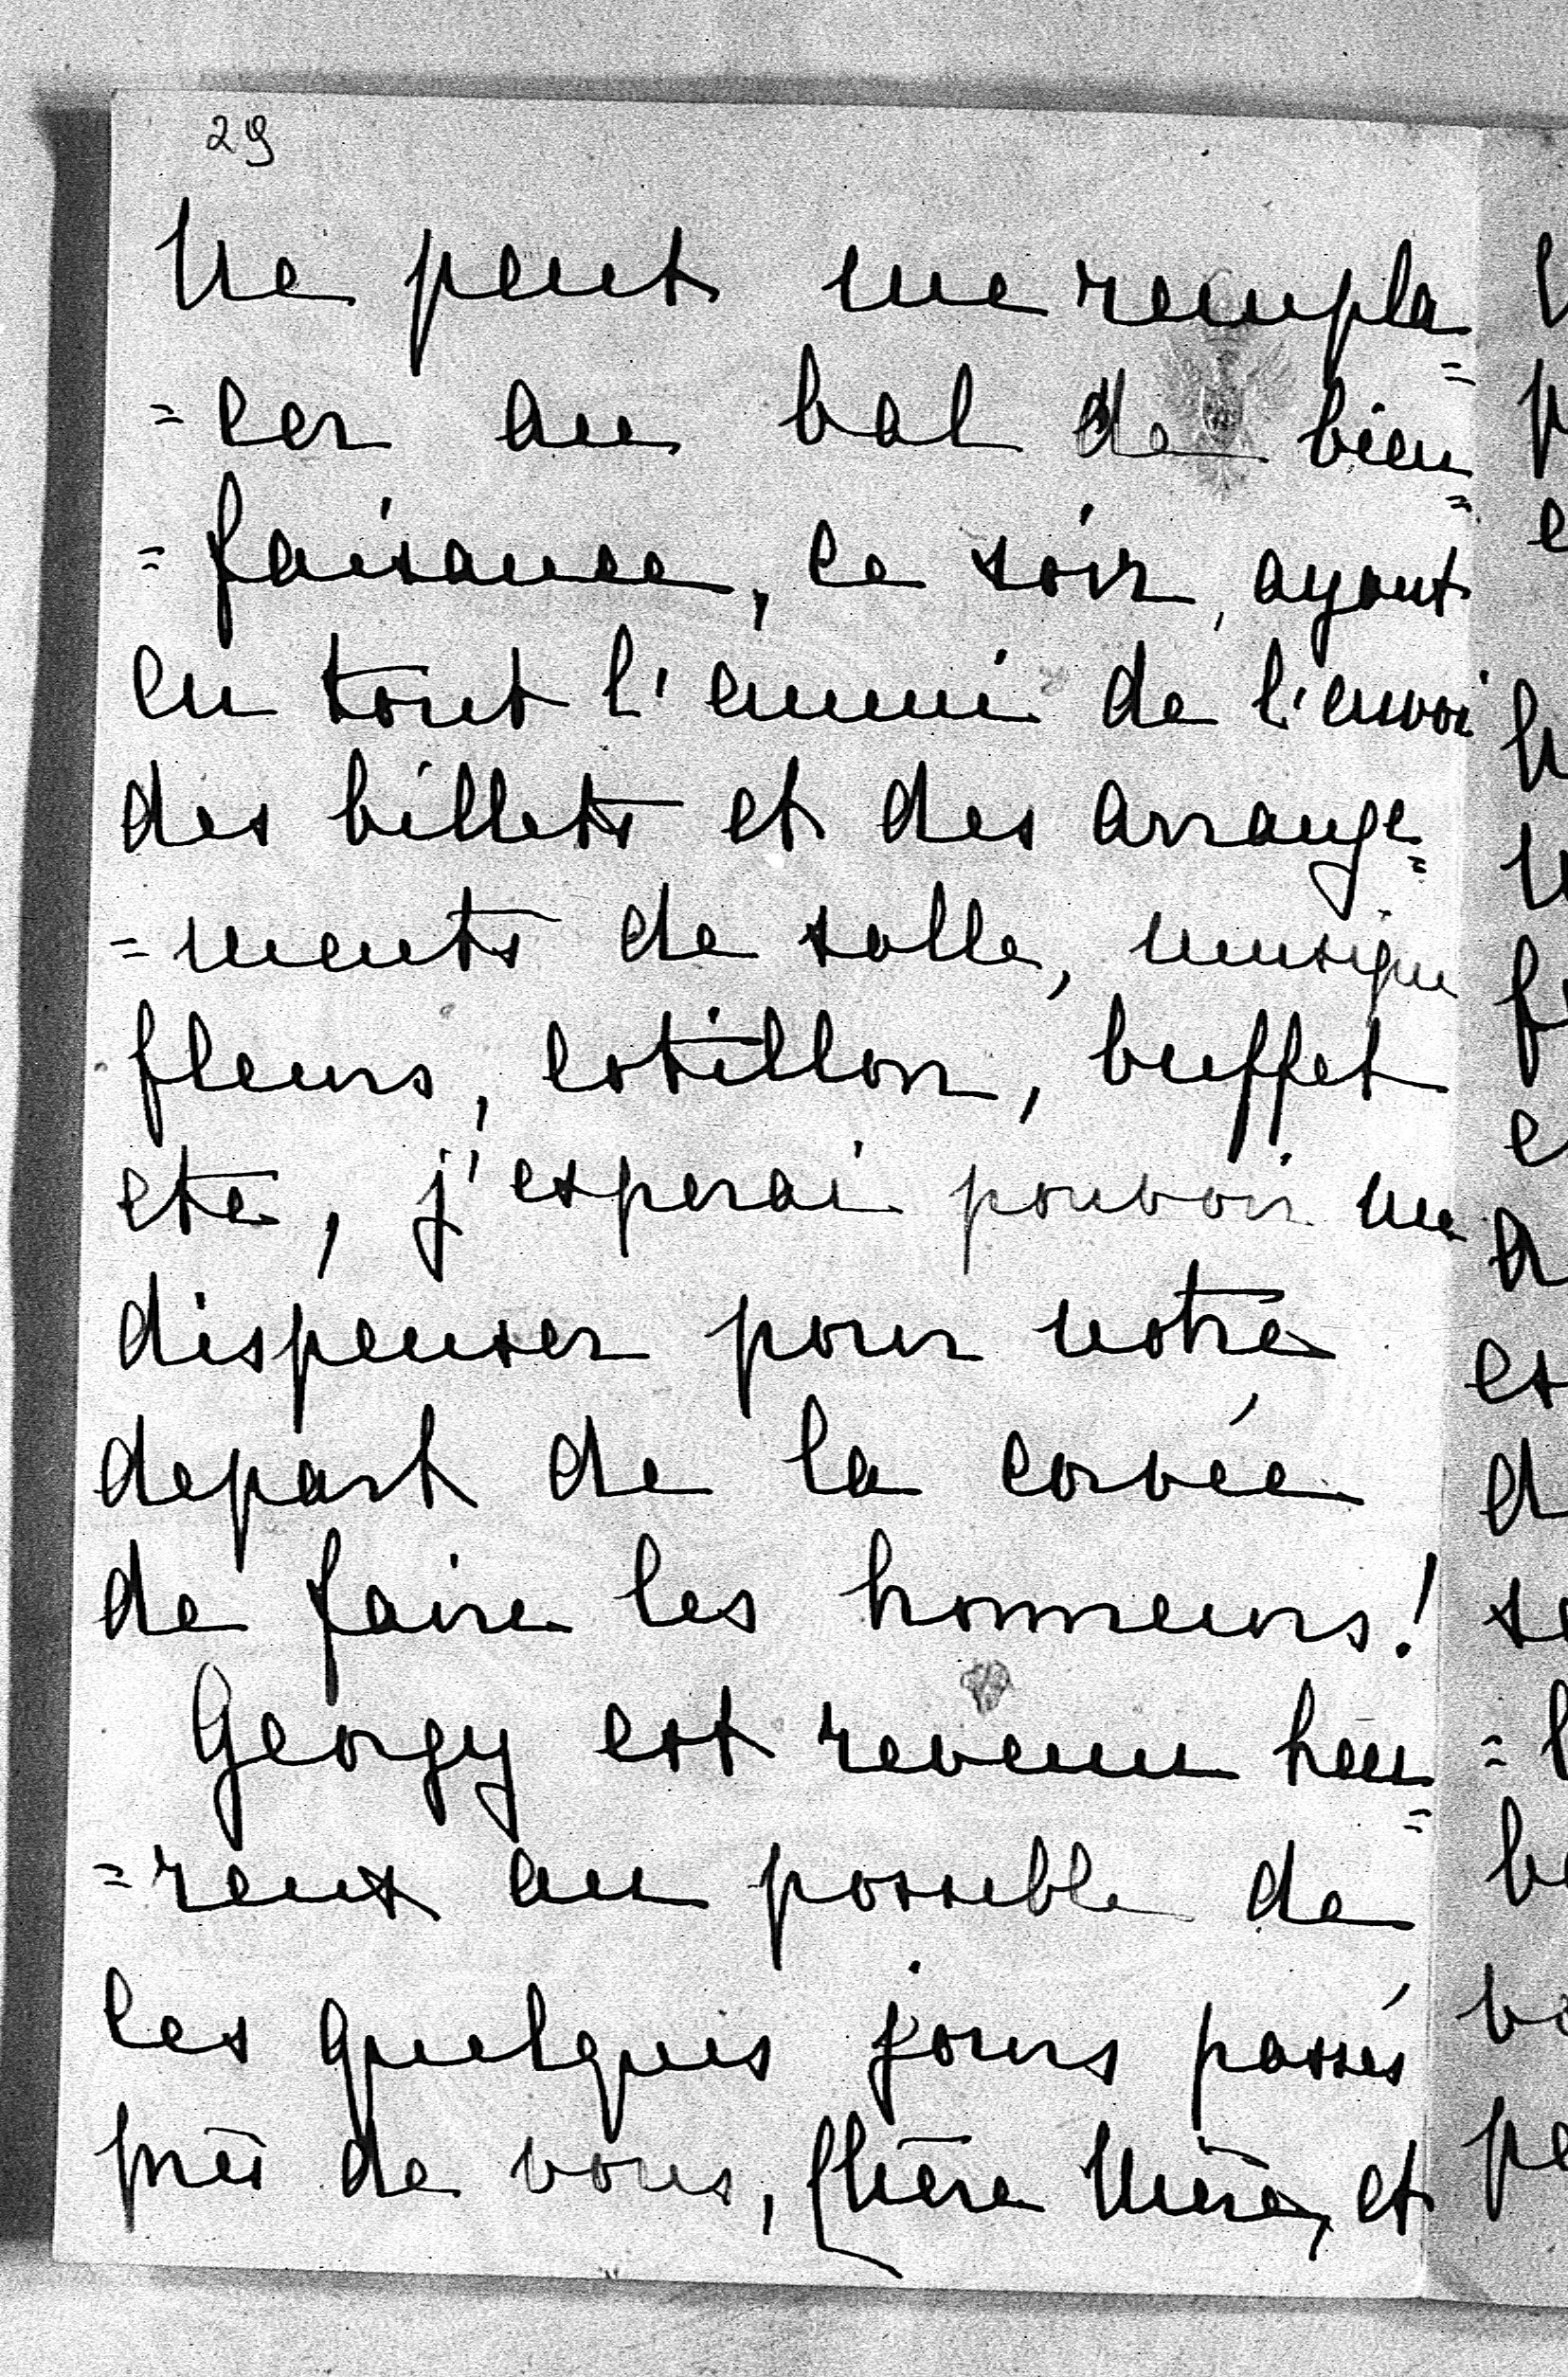 29
Ne peut me rempla=
=cer au bal de bien=
=faisance, ce soir, ayant
eu tout l'ennui de l'envoi
des billets et des arrange=
=ments de salle, musique
fleurs, cotillon, buffet
etc, j'esperai pouvoir me
dispenser pour notre
depart de la corvée
de faire les honneurs!
Georgy est revenu heu=
=reux au possible de
ces quelques jours passés
près de vous, Chère Mère, et